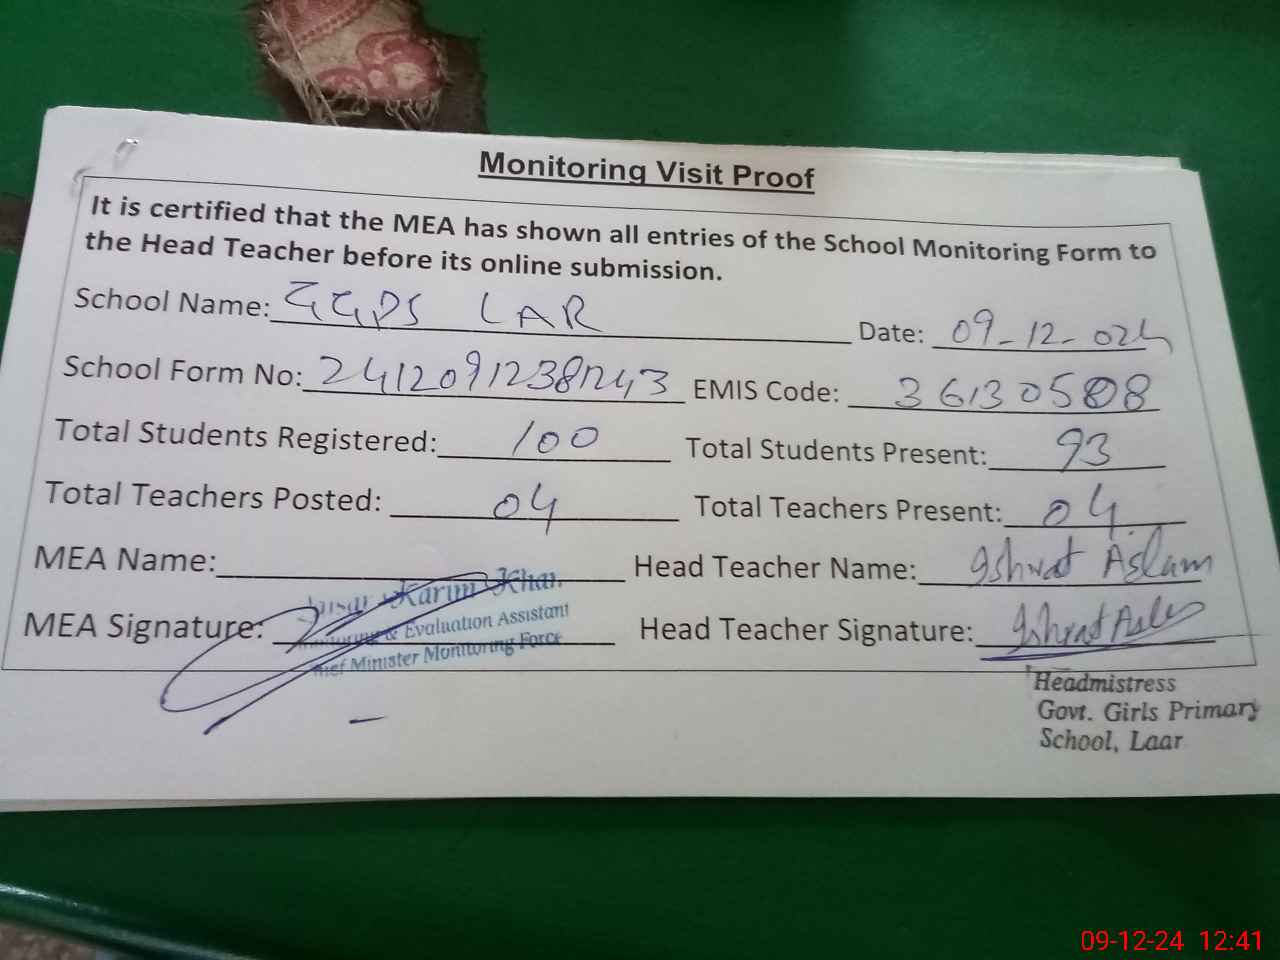 Monitoring Visit Proof
It is certified that the MEA has shown all entries of the School Monitoring Form to
the Head Teacher before its online submission.
School Name: GGPS LAR Date: 09-12-024
School Form No: 24120912381243 EMIS Code: 36130508
Total Students Registered: 100 Total Students Present: 93
Total Teachers Posted: 04 Total Teachers Present: 04
MEA Name: Karim Khan Head Teacher Name: Ishrat Aslam
& Evaluation Assistant
MEA Signature: Head Teacher Signature: Ishrat Asla
Minister Monitoring Force
Headmistress
Govt. Girls Primary
School, Laar
09-12-24 12:41